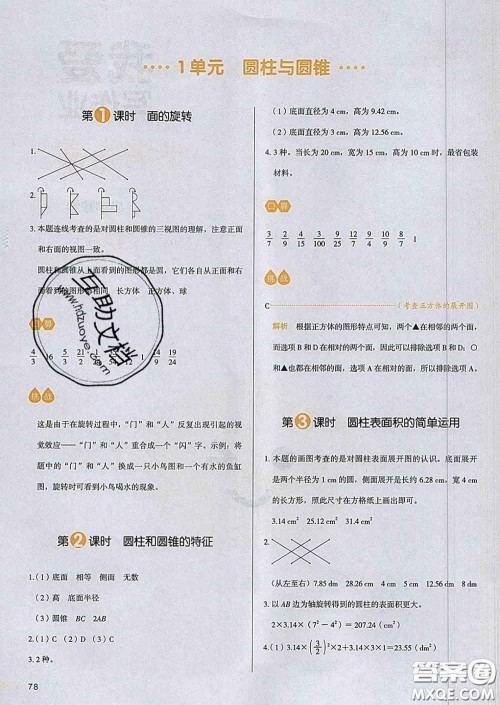 1单元 圆柱与圆锥
第1课时 面的旋转
1.
2.
3. 本题连线考查的是对圆柱和圆锥的三视图的理解，注意正面
和右面的视图一致。
圆柱和圆锥从上面看到的图形都是圆，它们各自从正面和右
面看到的图形都相同 长方体 正方体、球
口算
挑战
这是由于在旋转过程中，“门”和“人”反复出现引起的视
觉效应——“门”和“人”重合成一个“闪”字。示例：将
题中的“门”和“人”换成一只小鸟和一个有水的鱼缸
图，旋转时可看到小鸟喝水的现象。
第2课时 圆柱和圆锥的特征
1.(1) 底面 相等 侧面 无数
(2) 高 底面半径
(3) 圆锥 BC 2AB
2.(1) C (2) D (3) C
3. 2种。
78
(1) 底面直径为 4 cm，高为 9.42 cm。
(2) 底面直径为 3 cm，高为 12.56 cm。
4. 3种。当长为 20 cm，宽为 15 cm，高为 10 cm 时，最省包装
材料。
口算
挑战
C (考查正方体的展开图)
解析 根据正方体的图形特点可知，两个▲是相邻的两个面，
而选项 B 和 D 在相对的两个面，因此可以排除选项 B 和 D；○
和▲也都是相邻的面，而选项 A 不满足，所以排除选项 A。
第3课时 圆柱表面积的简单运用
1. 本题的画图考查的是对圆柱表面展开图的认识。底面展开
是两个半径为 1 cm 的圆，侧面展开是长约 6.28 cm，宽 4 cm
的长方形，照此尺寸在方格纸上画出即可。
3.14 cm² 25.12 cm² 31.4 cm²
2.
(从左至右) 7.85 dm 28.26 cm 18.84 m 12.56 dm 8 dm
3. 以 AB 边为轴旋转得到的圆柱的表面积更大。
2×3.14×(7²-4²)=207.24 (dm²)
4.(1) 3.14×(3/2)²×2+3.14×3×1=23.55 (dm²)
互助文档
www.hdzuoye.com
答案圈
MXQE.COM